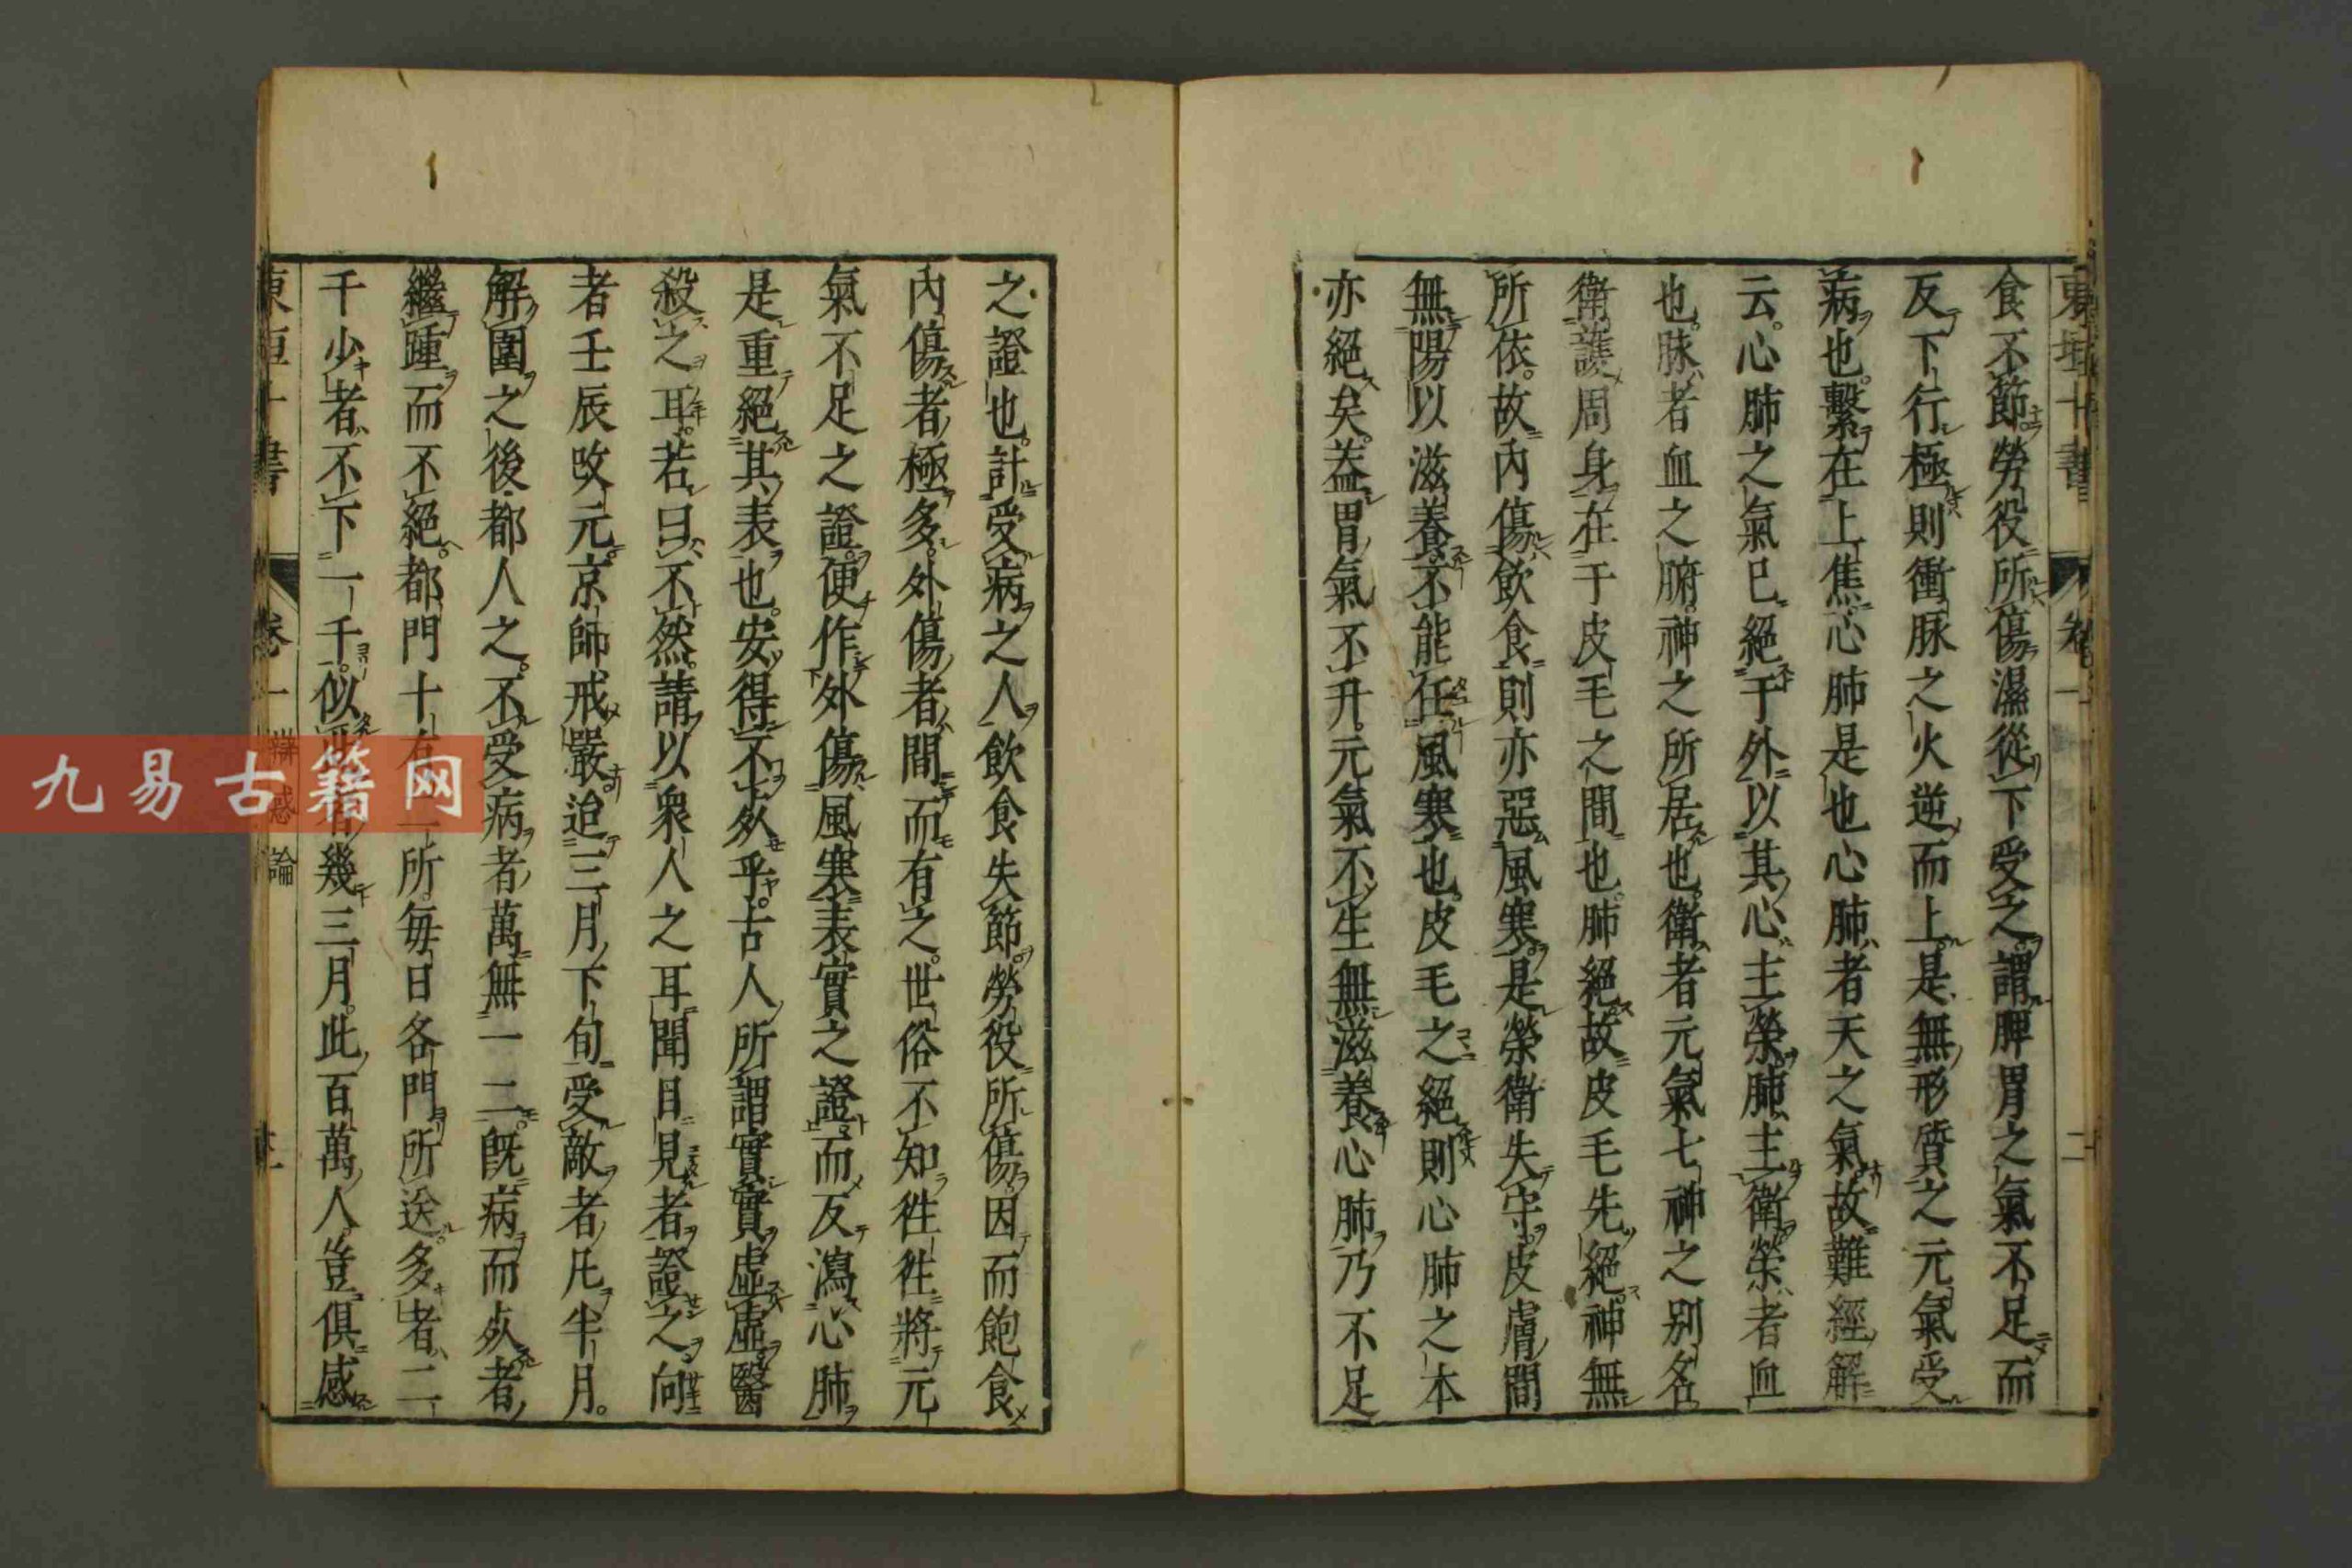 東垣十書 卷一 二
食不節勞役所傷濕從下受之謂脾胃之氣不足而
反下行極則衝脉之火逆而上是無形質之元氣受
病也繫在上焦心肺是也心肺者天之氣故難經解
云心肺之氣已絕于外以其心主榮肺主衛榮者血
也脉者血之腑神之所居也衛者元氣七神之別名
衛護周身在于皮毛之間也肺絕故皮毛先絕神無
所依故內傷飲食則亦惡風寒是榮衛失守皮膚間
無陽以滋養不能任風寒也皮毛之絕則心肺之本
亦絕矣蓋胃氣不升元氣不生無滋養心肺乃不足
之證也計受病之人飲食失節勞役所傷因而飽食
內傷者極多外傷者間而有之世俗不知徃徃將元
氣不足之證便作外傷風寒表實之證而反瀉心肺
是重絕其表也安得不死乎古人所謂實實虛虛醫
殺之耳若曰不然請以衆人之耳聞目見者證之向
者壬辰改元京師戒嚴迨三月下旬受敵者凡半月
解圍之後都人之不受病者萬無一二既病而死者
繼踵而不絕都門十有二所每日各門所送多者二
千少者不下一千似者幾三月此百萬人豈俱感
東垣十書 卷一 辯惑論
九易古籍网